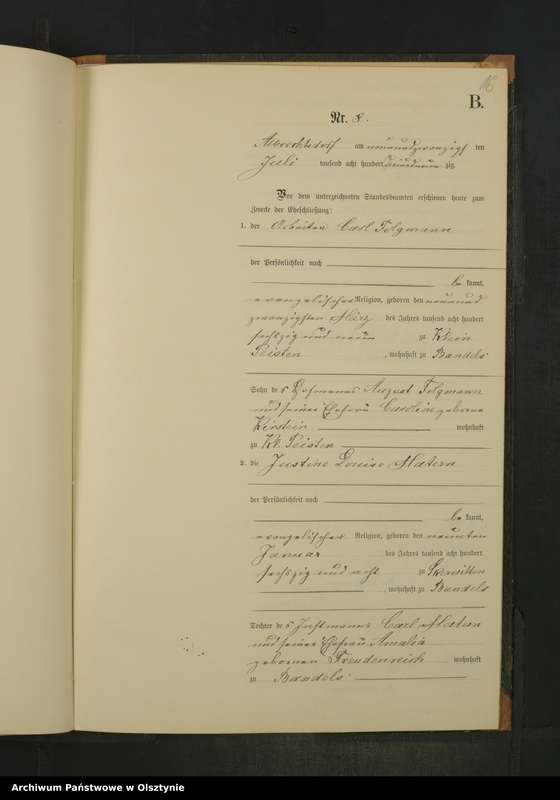 116
B.
Nr. 8.
Albrechtsdorf am neunundzwanzigs ten
Juli tausend acht hundert zig
Vor dem unterzeichneten Standesbeamten erschienen heute zum
Zwecke der Eheschließung:
1. der Arbeiter Carl Folgmann
der Persönlichkeit nach
be kannt,
evangelischer Religion, geboren den neunund
zwanzigsten März des Jahres tausend acht hundert
sechszig und neun zu Klein
Peisten , wohnhaft zu Bandels
Sohn des Hofmanns August Folgmann
und seiner Ehefrau Caroline geborne
Kirstein wohnhaft
zu Kl. Peisten
2. die Justine Louise Matern
der Persönlichkeit nach
be kannt,
evangelischer Religion, geboren den neunten
Januar des Jahres tausend acht hundert
sechszig und acht zu Skerwitten
, wohnhaft zu Bandels
Tochter des Instmanns Carl Matern
und seiner Ehefrau Amalia
gebornen Freudenreich wohnhaft
zu Bandels
Archiwum Państwowe w Olsztynie